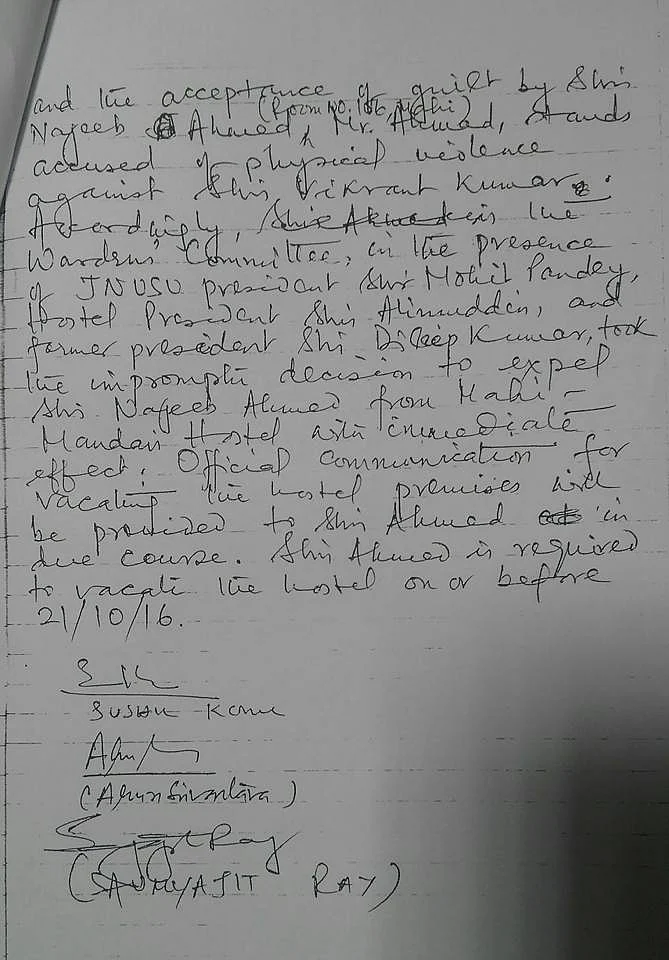 and the acceptance of guilt by Shri
(Room No. 106, Mahi)
Najeeb Ahmed, Mr. Ahmad, stands
accused of physical violence
against Shri Vikrant Kumar.
Accordingly, the
Wardens' Committee, in the presence
of JNUSU president Shri Mohit Pandey,
Hostel President Shri Alimuddin, and
former president Shri Dileep Kumar, took
the impromptu decision to expel
Shri Najeeb Ahmed from Mahi-
Mandavi Hostel with immediate
effect. Official communication for
vacating the hostel premises will
be provided to Shri Ahmad in
due course. Shri Ahmed is required
to vacate the hostel on or before
21/10/16.
(Arun Srivastava)
(SAUMYAJIT RAY)